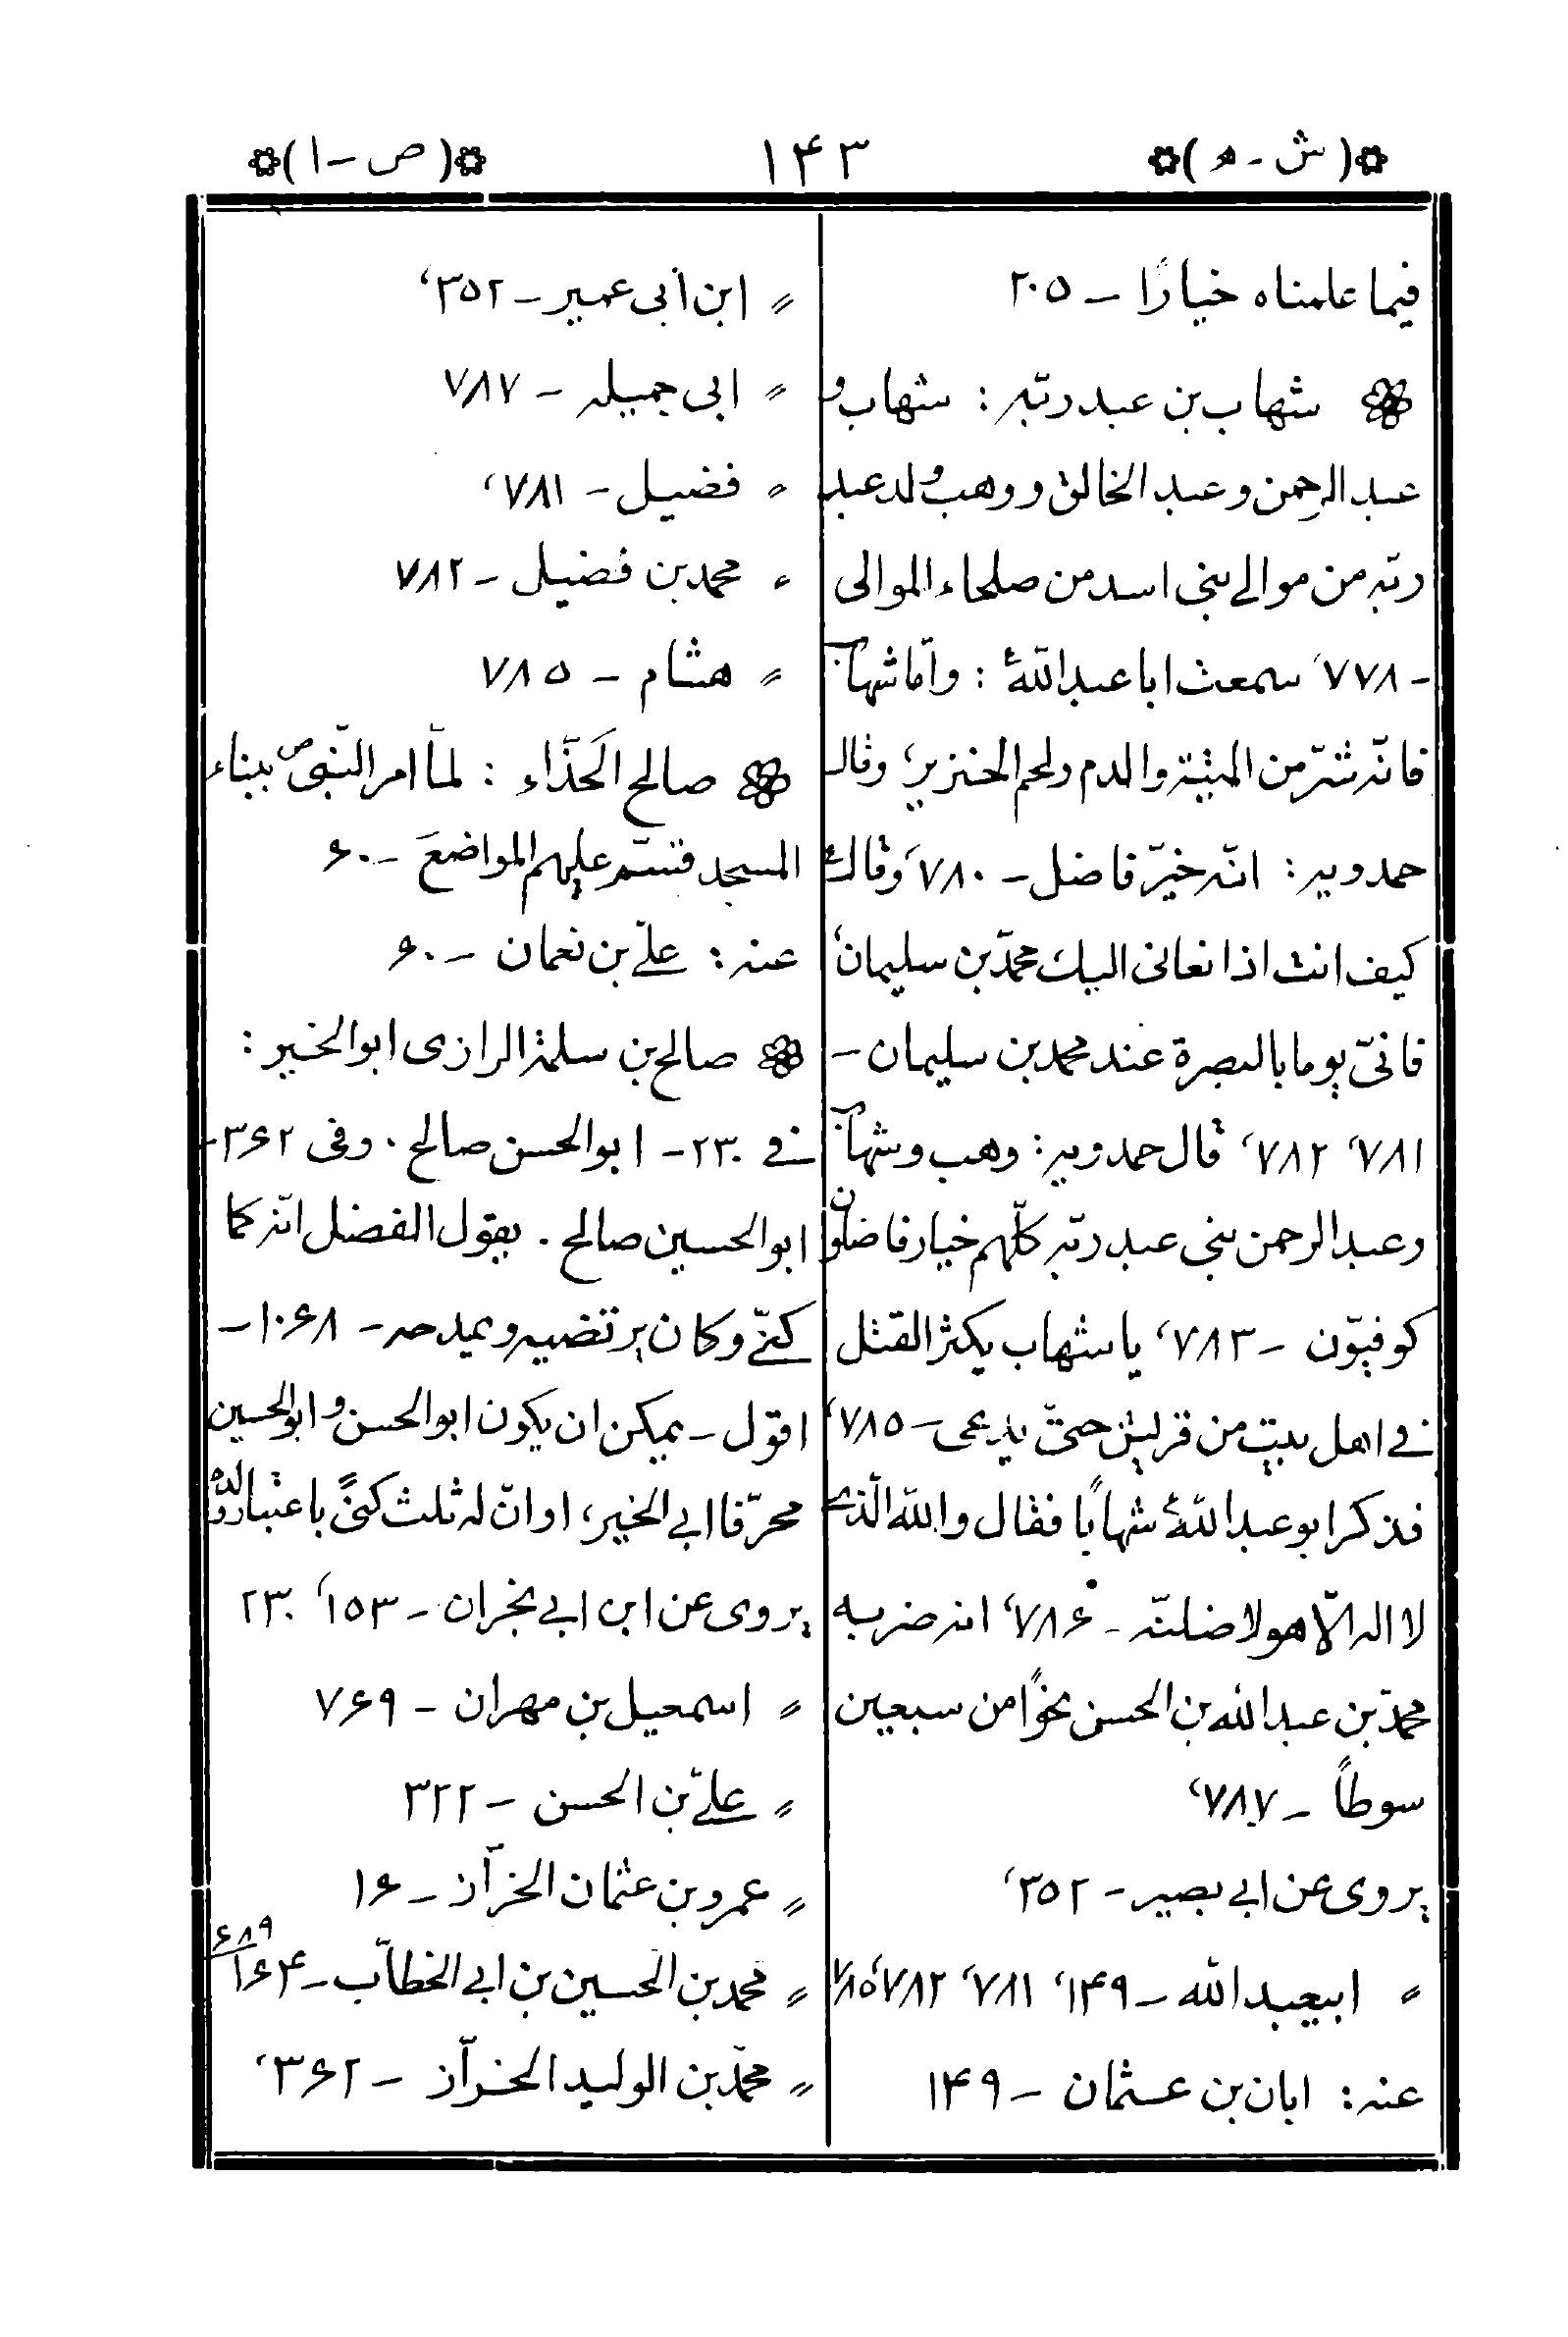 (ش - ه)
١۴٣
(ص - ا)
فيما علمناه خيارًا - ٢٠٥
شهاب بن عبد ربّه : شهاب و
عبد الرحمن و عبد الخالق و وهب ولد عبد
ربّه من موالي بني اسد من صلحاء الموالى
- ٧٧٨، سمعت ابا عبد اللهؑ : وأمّا شهاب
فانّه شرّ من الميتة والدم ولحم الخنزير، وقال
حمدويه : انّه خيّر فاضل - ٧٨٠، وقال
كيف انت اذا نعانى اليك محمّد بن سليمان،
فانّى يوما بالبصرة عند محمد بن سليمان -
٧٨١، ٧٨٢، قال حمدويه : وهب و شهاب
و عبد الرحمن بني عبد ربّه كلّهم خيار فاضلون
كوفيّون - ٧٨٣، يا شهاب يكثر القتل
في اهل بيت من قريش حتّى يدعى - ٧٨٥،
فذكر ابو عبد اللهؑ شهابًا فقال والله الّذي
لا اله الّا هو لاضلنّه - ٧٨۶، انه ضربه
محمّد بن عبد الله بن الحسن نحوًا من سبعين
سوطاً - ٧٨٧،
يروى عن ابي بصير - ٣٥٢،
〃 ابيعبد الله - ١۴٩، ٧٨١، ٧٨٢، ٧٨٥
عنه : ابان بن عثمان - ١۴٩
〃 ابن ابى عمير - ٣٥٢،
〃 ابى جميله - ٧٨٧
〃 فضيل - ٧٨١،
〃 محمد بن فضيل - ٧٨٢
〃 هشام - ٧٨٥
صالح الحَذّاء : لمّا امر النّبىّ ص ببناء
المسجد فقسّم عليهم المواضعَ - ۶٠
عنه : علىّ بن نعمان - ۶٠
صالح بن سلمة الرازى ابو الخير :
في ٢٣٠ - ابو الحسن صالح . وفى ٣۶٢ -
ابو الحسين صالح . يقول الفضل انّه كما
كنّي وكان يرتضيه ويمدحه - ١٠۶٨ -
اقول - يمكن ان يكون ابو الحسن و ابو الحسين
محرّفا ابي الخير، او انّ له ثلث كنىً باعتبار ولده
يروى عن ابن ابي نجران - ١٥٣، ٢٣٠
〃 اسمعيل بن مهران - ٧۶٩
〃 علىّ بن الحسن - ٣٢٢
〃 عمرو بن عثمان الخزّاز - ١۶
〃 محمد بن الحسين بن ابي الخطاّب - ١۶۴ ۶٨٩
〃 محمّد بن الوليد الخزّاز - ٣۶٢،